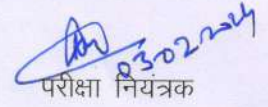 03.02.2024
परीक्षा नियंत्रक